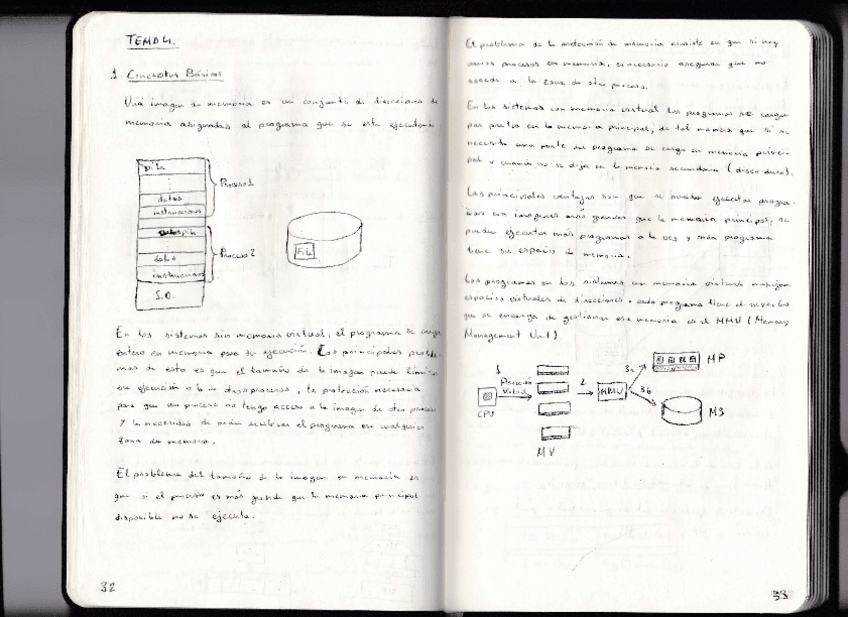 TEMA 4.
1. Conceptos Básicos
Una imagen de memoria es un conjunto de direcciones de
memoria asignadas al programa que se está ejecutando
pila
datos
instrucciones
Proceso 1
pila
datos
instrucciones
Proceso 2
S.O.
P.L.
En los sistemas sin memoria virtual, el programa se carga
entero en memoria para su ejecución. Los principales proble-
mas de esto es que el tamaño de la imagen puede limitar
su ejecución o la de otros procesos, la protección necesaria
para que un proceso no tenga acceso a la imagen de otro proceso
y la necesidad de poder el programa en cualquier
zona de memoria.
El problema del tamaño de la imagen en memoria es
que si el proceso es más grande que la memoria principal
disponible no se ejecuta.
32
El problema de la protección de memoria consiste en que si hay
varios procesos en memoria, es necesario asegurar que no
accede a la zona de otro proceso.
En los sistemas con memoria virtual los programas se cargan
por partes en la memoria principal, de tal manera que si se
necesita una parte del programa se carga en memoria princi-
pal y cuando no se deja en la memoria secundaria (disco duro).
Las principales ventajas son que se pueden ejecutar progra-
mas con imagenes más grandes que la memoria principal, se
pueden ejecutar más programas a la vez y cada programa
tiene su espacio de memoria.
Los programas en los sistemas con memoria virtual manejan
espacios virtuales de direcciones, cada programa tiene el suyo. Lo
que se encarga de gestionar esa memoria es el MMU (Memory
Management Unit)
1
Dirección
Virtual
CPU
MV
2
MMU
3a
3b
MP
MS
33